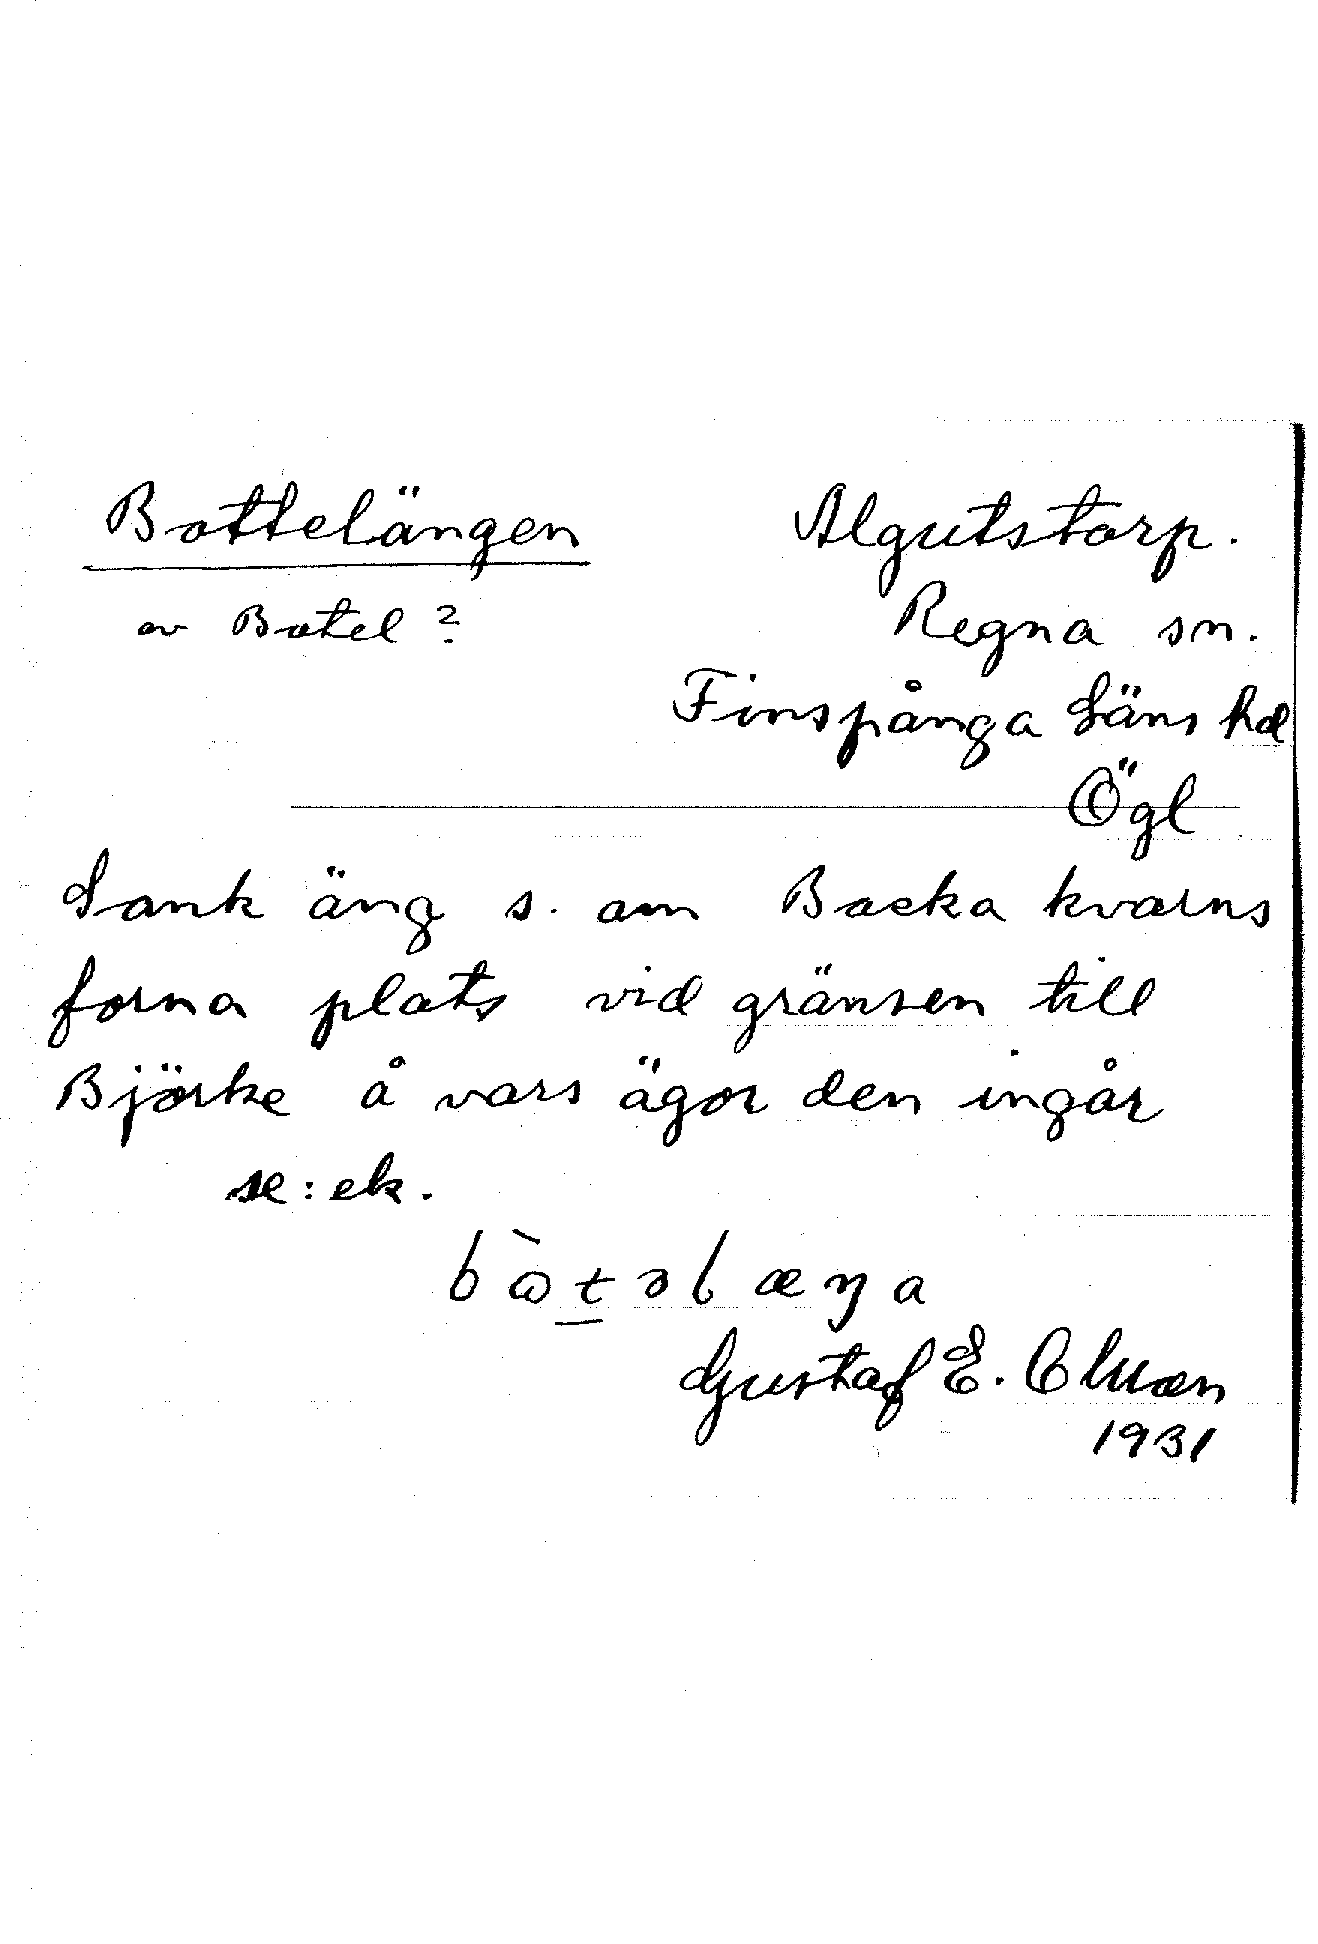 Bottelängen
av Botel?
Algutstorp.
Regna sn.
Finspånga Läns hd
Ögl
Sank äng s. om Backa kvarns
forna plats vid gränsen till
Björke å vars ägor den ingår
se: ek.
Gustaf E.
1931